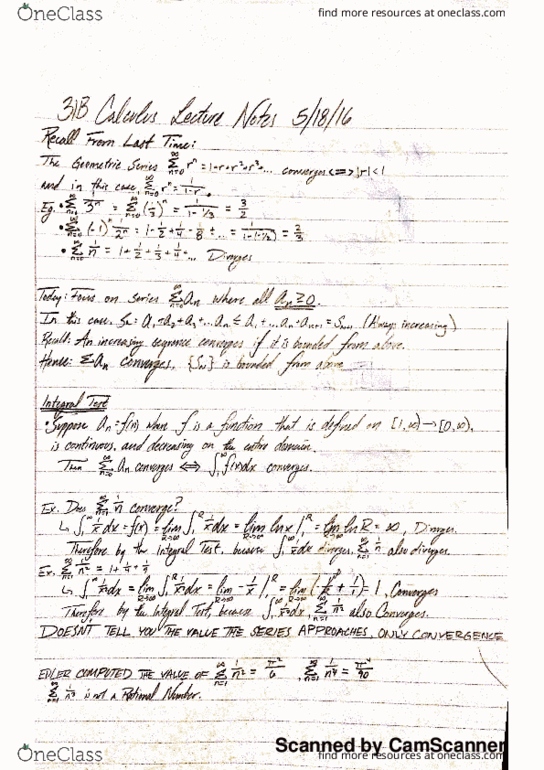 OneClass
find more resources at oneclass.com
31B Calculus Lecture Notes 5/18/16
Recall From Last Time:
The Geometric Series ∞Σn=0 rⁿ = 1+r+r²+r³+... converges <=> |r|<1
and in this case, ∞Σn=0 rⁿ = 1/(1-r).
Eg. • ∞Σn=0 1/3ⁿ = ∞Σn=0 (1/3)ⁿ = 1/(1-1/3) = 3/2
• ∞Σn=0 (-1)ⁿ 1/2ⁿ = 1-1/2+1/4-1/8+... = 1/(1-(-1/2)) = 2/3
• ∞Σ 1/n = 1+1/2+1/3+1/4... Diverges
Today: Focus on Series ∞Σ an where all an≥0.
In this case. Sn = a₁+a₂+a₃+...an ≤ a₁+...an+an+1 = Sn+1 (Always increasing)
Recall: An increasing sequence converges if it is bounded from above.
Hence: Σan converges, {Sn} is bounded from above
Integral Test
• Suppose an=f(n) where f is a function that is defined on [1,∞)→[0,∞),
is continuous, and decreasing on the entire domain.
Then ∞Σ an converges <=> ∫₁^∞ f(x)dx converges.
Ex. Does ∞Σn=1 1/n converge?
↳ ∫₁^∞ 1/x dx = f(x) = lim R→∞ ∫₁^R 1/x dx = lim R→∞ ln x |₁^R = lim R→∞ ln R = ∞, Diverges
Therefore by the integral Test, because ∫₁^∞ 1/x dx diverges, ∞Σn=1 1/n also diverges.
Ex. ∞Σn=1 1/n² = 1+1/4+1/9
↳ ∫₁^∞ 1/x² dx = lim R→∞ ∫₁^R 1/x² dx = lim R→∞ -1/x |₁^R = lim R→∞ (-1/R + 1) = 1, Converges
Therefore, by the Integral Test, because ∫₁^∞ 1/x² dx, ∞Σn=1 1/n² also Converges.
DOESN'T TELL YOU THE VALUE THE SERIES APPROACHES, ONLY CONVERGENCE
EULER COMPUTED THE VALUE OF ∞Σn=1 1/n² = π²/6 ∞Σn=1 1/n⁴ = π⁴/90
∞Σn=1 1/n³ is not a Rational Number.
Scanned by CamScanner
OneClass
find more resources at oneclass.com